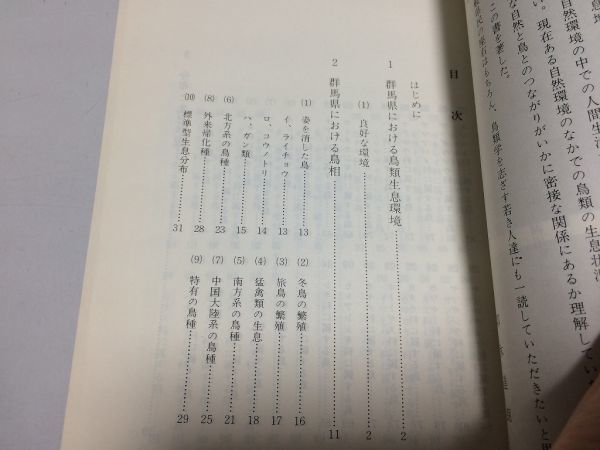 息地
自然環境の中での人間生活
い。現在ある自然環境のなかでの鳥類の生息状況
な自然と鳥とのつながりがいかに密接な関係にあるか理解してい
この書を著した。
鳥類学を志ざす若き人達にも一読していただきたいと思
目次
はじめに
1 群馬県における鳥類生息環境 2
(1) 良好な環境 2
2 群馬県における鳥相 11
(1) 姿を消した鳥 13
イ、ライチョウ 13
ロ、コウノトリ 14
ハ、ガン類 15
(2) 冬鳥の繁殖 16
(3) 旅鳥の繁殖 17
(4) 猛禽類の生息 18
(5) 南方系の鳥種 21
(6) 北方系の鳥種 23
(7) 中国大陸系の鳥種 25
(8) 外来帰化種 28
(9) 特有の鳥種 29
(10) 標準型生息分布 31